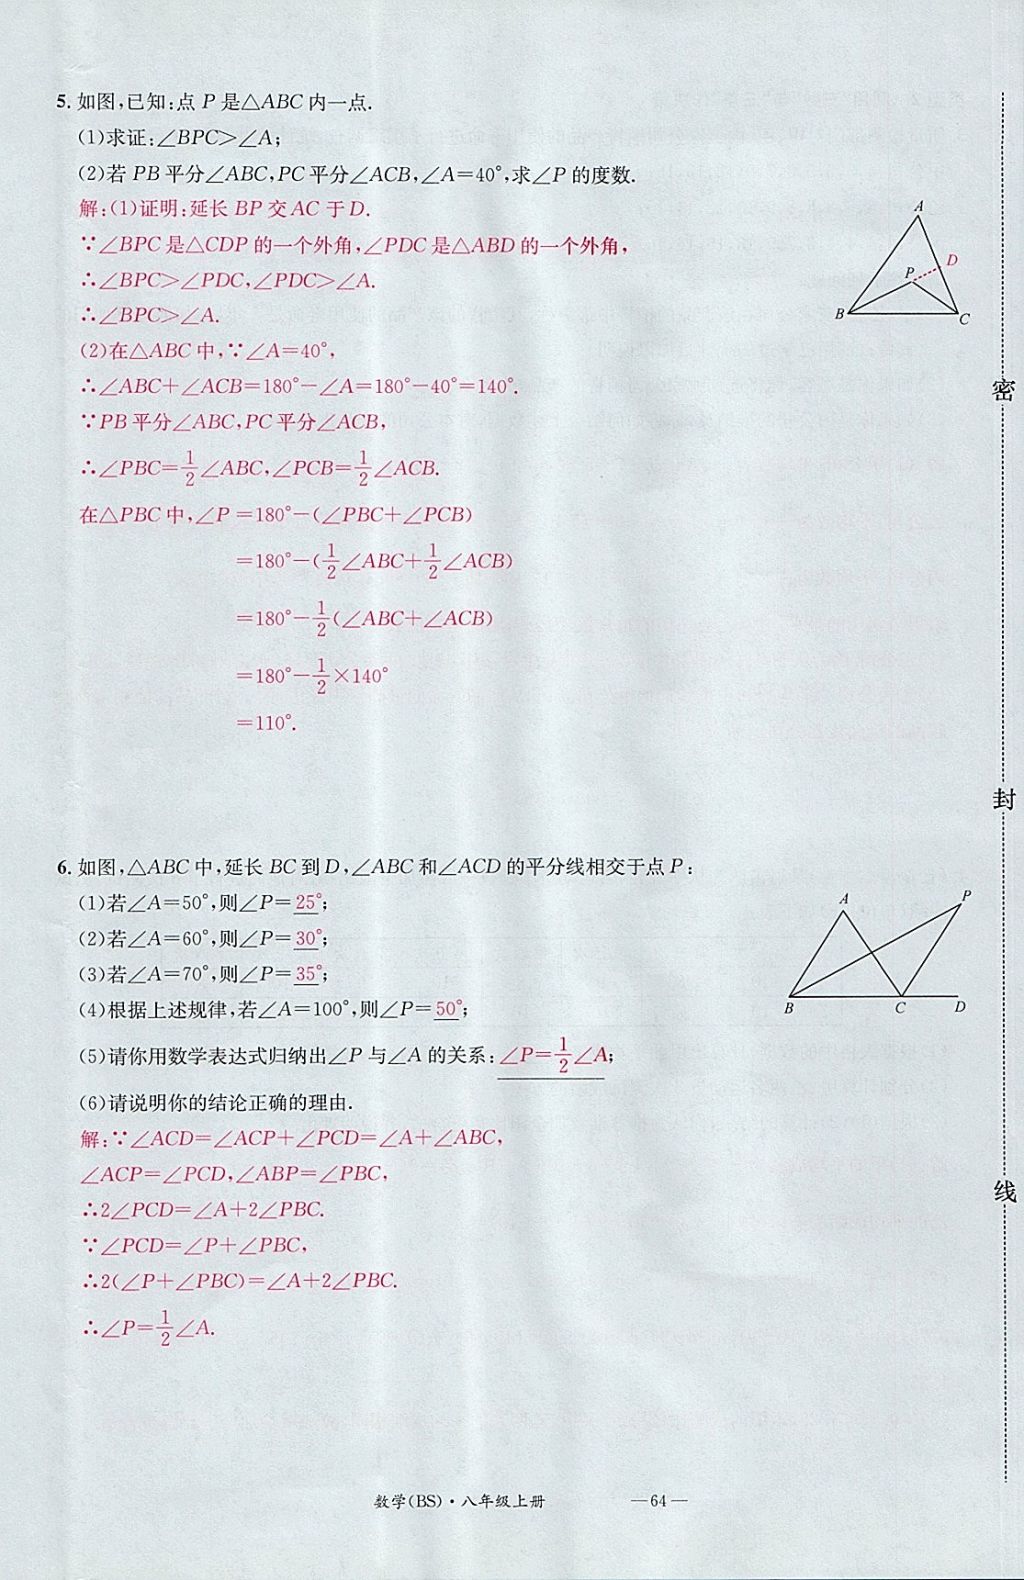 5. 如图,已知:点 P 是△ABC 内一点.
(1)求证:∠BPC>∠A;
(2)若 PB 平分∠ABC,PC 平分∠ACB,∠A=40°,求∠P 的度数.
解:(1)证明:延长 BP 交 AC 于 D.
∵∠BPC 是△CDP 的一个外角,∠PDC 是△ABD 的一个外角,
∴∠BPC>∠PDC,∠PDC>∠A.
∴∠BPC>∠A.
(2)在△ABC 中,∵∠A=40°,
∴∠ABC+∠ACB=180°-∠A=180°-40°=140°.
∵PB 平分∠ABC,PC 平分∠ACB,
∴∠PBC=1/2∠ABC,∠PCB=1/2∠ACB.
在△PBC 中,∠P =180°-(∠PBC+∠PCB)
=180°-(1/2∠ABC+1/2∠ACB)
=180°-1/2(∠ABC+∠ACB)
=180°-1/2×140°
=110°.
A
P
D
B
C
6. 如图,△ABC 中,延长 BC 到 D,∠ABC 和∠ACD 的平分线相交于点 P:
(1)若∠A=50°,则∠P=25°;
(2)若∠A=60°,则∠P=30°;
(3)若∠A=70°,则∠P=35°;
(4)根据上述规律,若∠A=100°,则∠P=50°;
(5)请你用数学表达式归纳出∠P 与∠A 的关系:∠P=1/2∠A;
(6)请说明你的结论正确的理由.
解:∵∠ACD=∠ACP+∠PCD=∠A+∠ABC,
∠ACP=∠PCD,∠ABP=∠PBC,
∴2∠PCD=∠A+2∠PBC.
∵∠PCD=∠P+∠PBC,
∴2(∠P+∠PBC)=∠A+2∠PBC.
∴∠P=1/2∠A.
A
P
B
C
D
密
封
线
数学(BS)·八年级上册 —64—